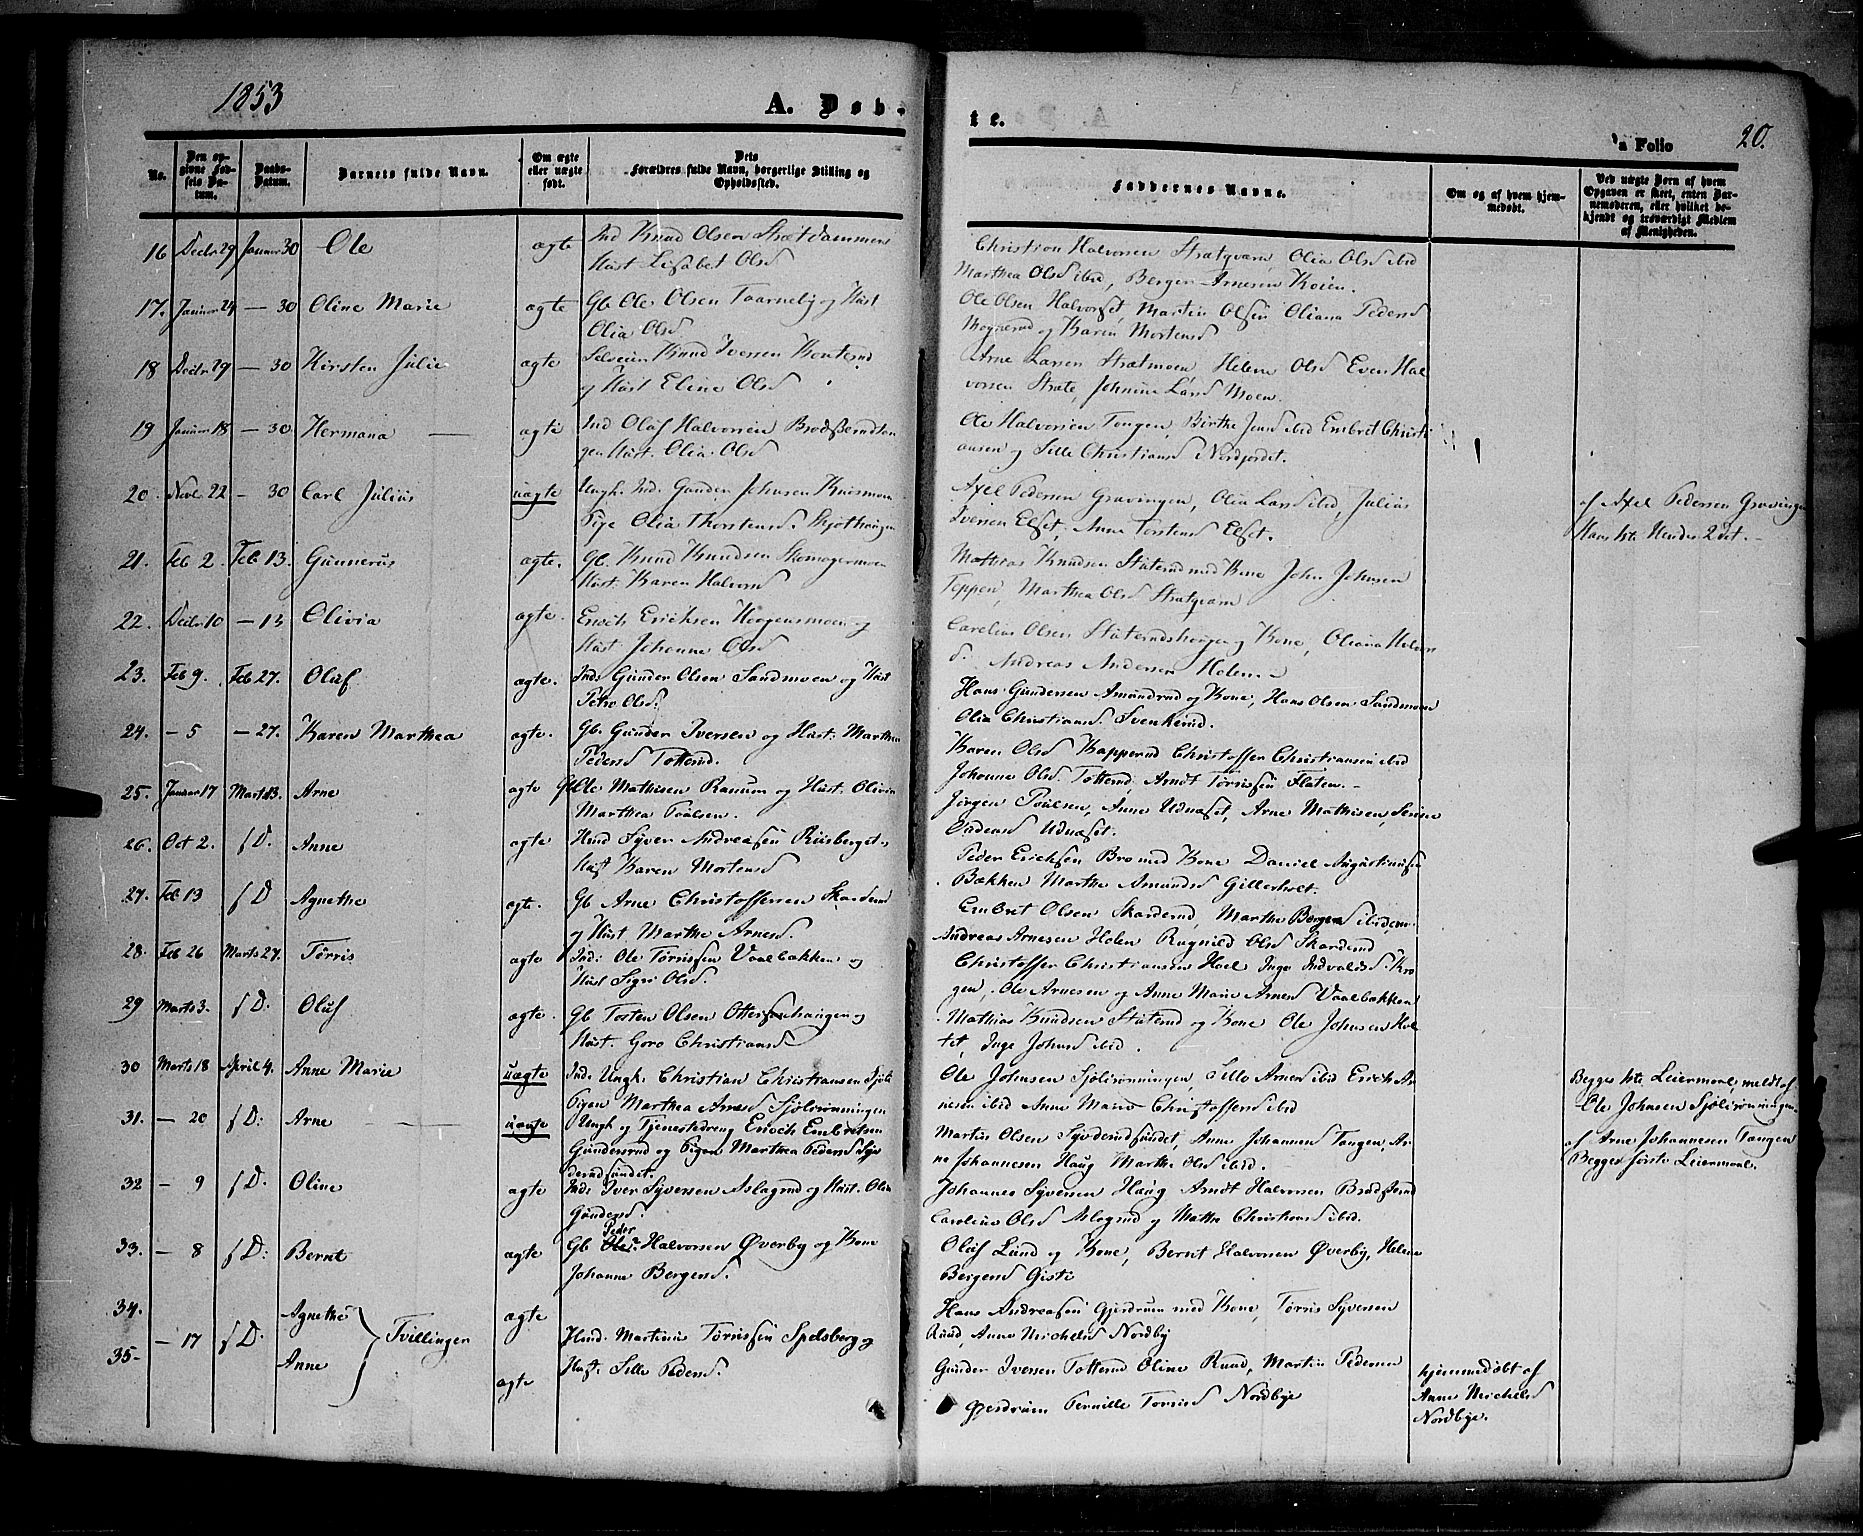 1853
A. Døb-
te.
'a Folio
20.
No.
Den op-
givne Fød-
sels Da-
tum.
Daabs-
Datum.
Barnets fulde Navn.
Om ægte
eller uægte
født.
Dets
Forældres fulde Navn, borgerlige Stilling og
Opholdssted.
Faddernes Navne.
Om og af hvem hjem-
medøbt.
Ved uægte Børn af hvem
Opgaven er skeet, enten Bar-
nemoderen, eller hvilket be-
kjendt og troværdigt Medlem
af Menigheden.
16 Decbr 29 Januar 30 Ole ægte Ind Knud Olsen Strætdammen
Hust Lisabet Olsd
Christian Halvorsen Strætqværn, Olia Olsd ibid
Marthea Olsd ibid, Berger Arnesen Koien.
17. Januar 24 — 30 Oline Marie ægte Gb. Ole Olsen Taarneby og Hust
Olia Olsd
Ole Olsen Halvorset, Martin Olsen Oliana Pedersd
Mognerud og Karen Mortensd
18 Decbr 29 — 30 Kirsten Julie ægte Selveier Knud Iversen Konterud
og Hust Eline Olsd
Arne Larsen Strætmoen Helene Olsd Even Hal
vorsen Stræte, Johnine Larsd Moen.
19 Januar 18 — 30 Hermana — ægte Ind Oluf Halvorsen Brødserudtan
gen Hust. Olia Olsd
Ole Halvorsen Tangen, Birthe Jensd ibid Embret Christi
ansen og Sille Christiansd Nordjordet.
20. Novb. 22 — 30 Carl Julius uægte Ungk. Ind. Gunder Johnsen Kнusmoen
Pige Olia Thorstensd. Skjothaugen
Axel Pedersen Gravingen, Olia Larsd ibid, Julius
Iversen Elset, Anne Torstensd Elset.
af Axel Pedersen Gravingen
Hans 1ste Hendes 2det. —
21. Feb 2. Feb 13. Gunnerus ægte. Gb. Knud Knudsen Skomagermoen
Hust. Karen Halvorsd
Mathias Knudsen Stuterud med Kone John Johnsen
Teppen, Marthea Olsd Strætqværn
22. Decbr 10 — 13 Olivia ægte. Enoch Ericksen Haagensmoen og
Hust Johanne Olsd
Carelius Olsen Stuterudshagen og Kone, Oliana Halvors
d. Andreas Andersen Holen. —
23. Feb 9. Feb 27. Oluf ægte. Ind. Gunder Olsen Sandmoen og Hust
Petro Olsd.
Hans Gundersen Amundrud og Kone, Hans Olsen Sandmoen
Olia Christiansd Svenkerud.
24. — 5 — 27. Karen Marthea ægte. Gb. Gunder Iversen og Hust. Marthea
Pedersd Totterud.
Karen Olsd Kapperud Christoffer Christiansen ibid
Johanne Olsd. Totterud, Arndt Tørrissen Flaten. —
25. Januar 17 Marts 13. Arne ægte Gb Ole Mathisen Ranum og Hust. Olivia
Marthea Poulsen.
Jørgen Poulsen, Anne Udnæset, Arne Mathisen, Serine
Endersd Udnæset.
26. Oct 2. f D. Anne ægte Husd Syver Andreasen Riisberget
Hust Karen Mortensd
Peder Ericksen Bro med Kone Daniel Augustinusen
Bækken Marthe Amundsd Gillerholt.
27. Feb 13 f D Agnethe ægte. Gb Arne Christoffersen Skarderud
og Hust Marthe Arnesd.
Embret Olsen Skarderud, Marthe Bergersd ibidem.
Andreas Arnesen Holen Ragnild Olsd Skarderud
28. Feb 26 Marts 27. Tørris ægte Ind: Ole Tørrissen Vaalbakken og
Hust Sigri Olsd.
Christoffer Christiansen Hoel Inge Indvaldsd. Kro
gen, Ole Arnesen og Anne Marie Arnesd Vaalbakken
29 Marts 3. f D: Oluf ægte. Gb Tosten Olsen Ottersenhaugen og
Hust. Goro Christiansd
Mathias Knudsen Stuterud og Kone Ole Johnsen Hol
tet, Inge Johnsd ibid.
30 Marts 18 April 4. Anne Marie uægte Ind. Ungk. Christian Christiansen Sjøli
Pigen Marthea Arnesd Sjølirønningen
Ole Johnsen Sjølirønningen, Sille Arnesd ibid Erick Ar
nesen ibid Anne Marie Christoffersd ibid
Begges 1ste Leiermaal, meldt af
Ole Johnsen Sjølirønningen
31. — 20 f D: Arne — uægte Ungk og Tjenestedreng Enoch Embretsen
Gundersrud og Pigen Marthea Pedersd Syv
derudsundet.
Martin Olsen Syvderudsundet, Anne Johannesd Tangen, Ar
ne Johannesen Haug Marthe Olsd ibid.
af Arne Johannesen Tangen
Begges første Leiermaal.
32 — 9 f D. Oline ægte Ind: Iver Syversen Aslagrud og Hust. Olia
Gundersd.
Johannes Syversen Haug Arndt Halvorsen Brødserud
Caroline Olsd Aslagrud og Mathea Christiansd ibid.
33. — 8 f D: Bernt ægte Gb Peder Halvorsen Øverby og Kone
Johanne Bergersd.
Oluf Lund og Kone, Bernt Halvorsen Øverby, Helene
Bergersd Gisti
34. Agnethe ægte
35. — 17 f D: Anne Tvillinger ægte
Husd. Martinus Tørrissen Spelsberg og
Hust. Sille Pedersd.
Hans Andreasen Gjerdrum med Kone, Tørris Syversen
Ruud, Anne Michelsd Nordby
Gunder Iversen Totterud Oline Ruud, Martin Pedersen
Gjerdrum Pernille Torrisd Nordbye
hjemmedøbt af
Anne Michelsd
Nordbye.